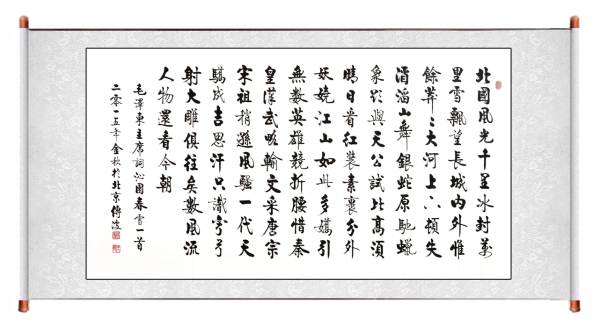 北國風光千里冰封萬
里雪飄望長城內外惟
餘莽〻大河上下頓失
滔滔山舞銀蛇原馳蠟
象欲與天公試比高須
晴日看紅裝素裹分外
妖嬈江山如此多嬌引
無數英雄競折腰惜秦
皇漢武略輸文采唐宗
宋祖稍遜風騷一代天
驕成吉思汗只識彎弓
射大雕俱往矣數風流
人物還看今朝
毛澤東主席詞沁園春雪一首
二零一五年金秋於北京